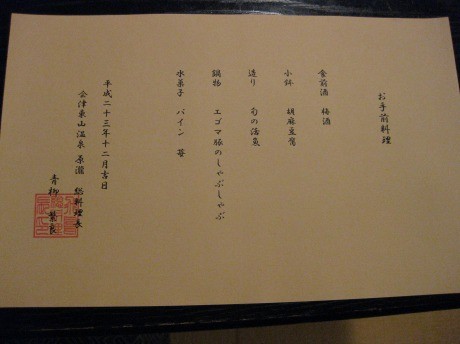 お手前料理
食前酒　梅酒
小鉢　胡麻豆腐
造り　旬の活魚
鍋物　エゴマ豚のしゃぶしゃぶ
水菓子　パイン　苺
平成二十三年十二月吉日
会津東山温泉　原瀧　総料理長
青柳　繁良